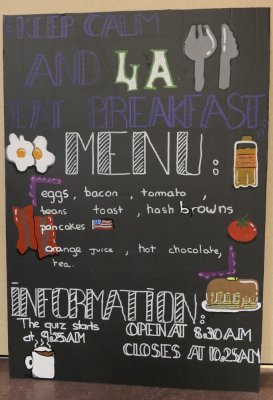 KEEP CALM
AND 4A
EAT BREAKFAST
MENU:
eggs, bacon, tomato,
beans toast, hash browns
pancakes
orange juice, hot chocolate,
tea.
INFORMATION:
The quiz starts
at 9:55AM
OPEN AT 8:30AM
CLOSES AT 10:25AM